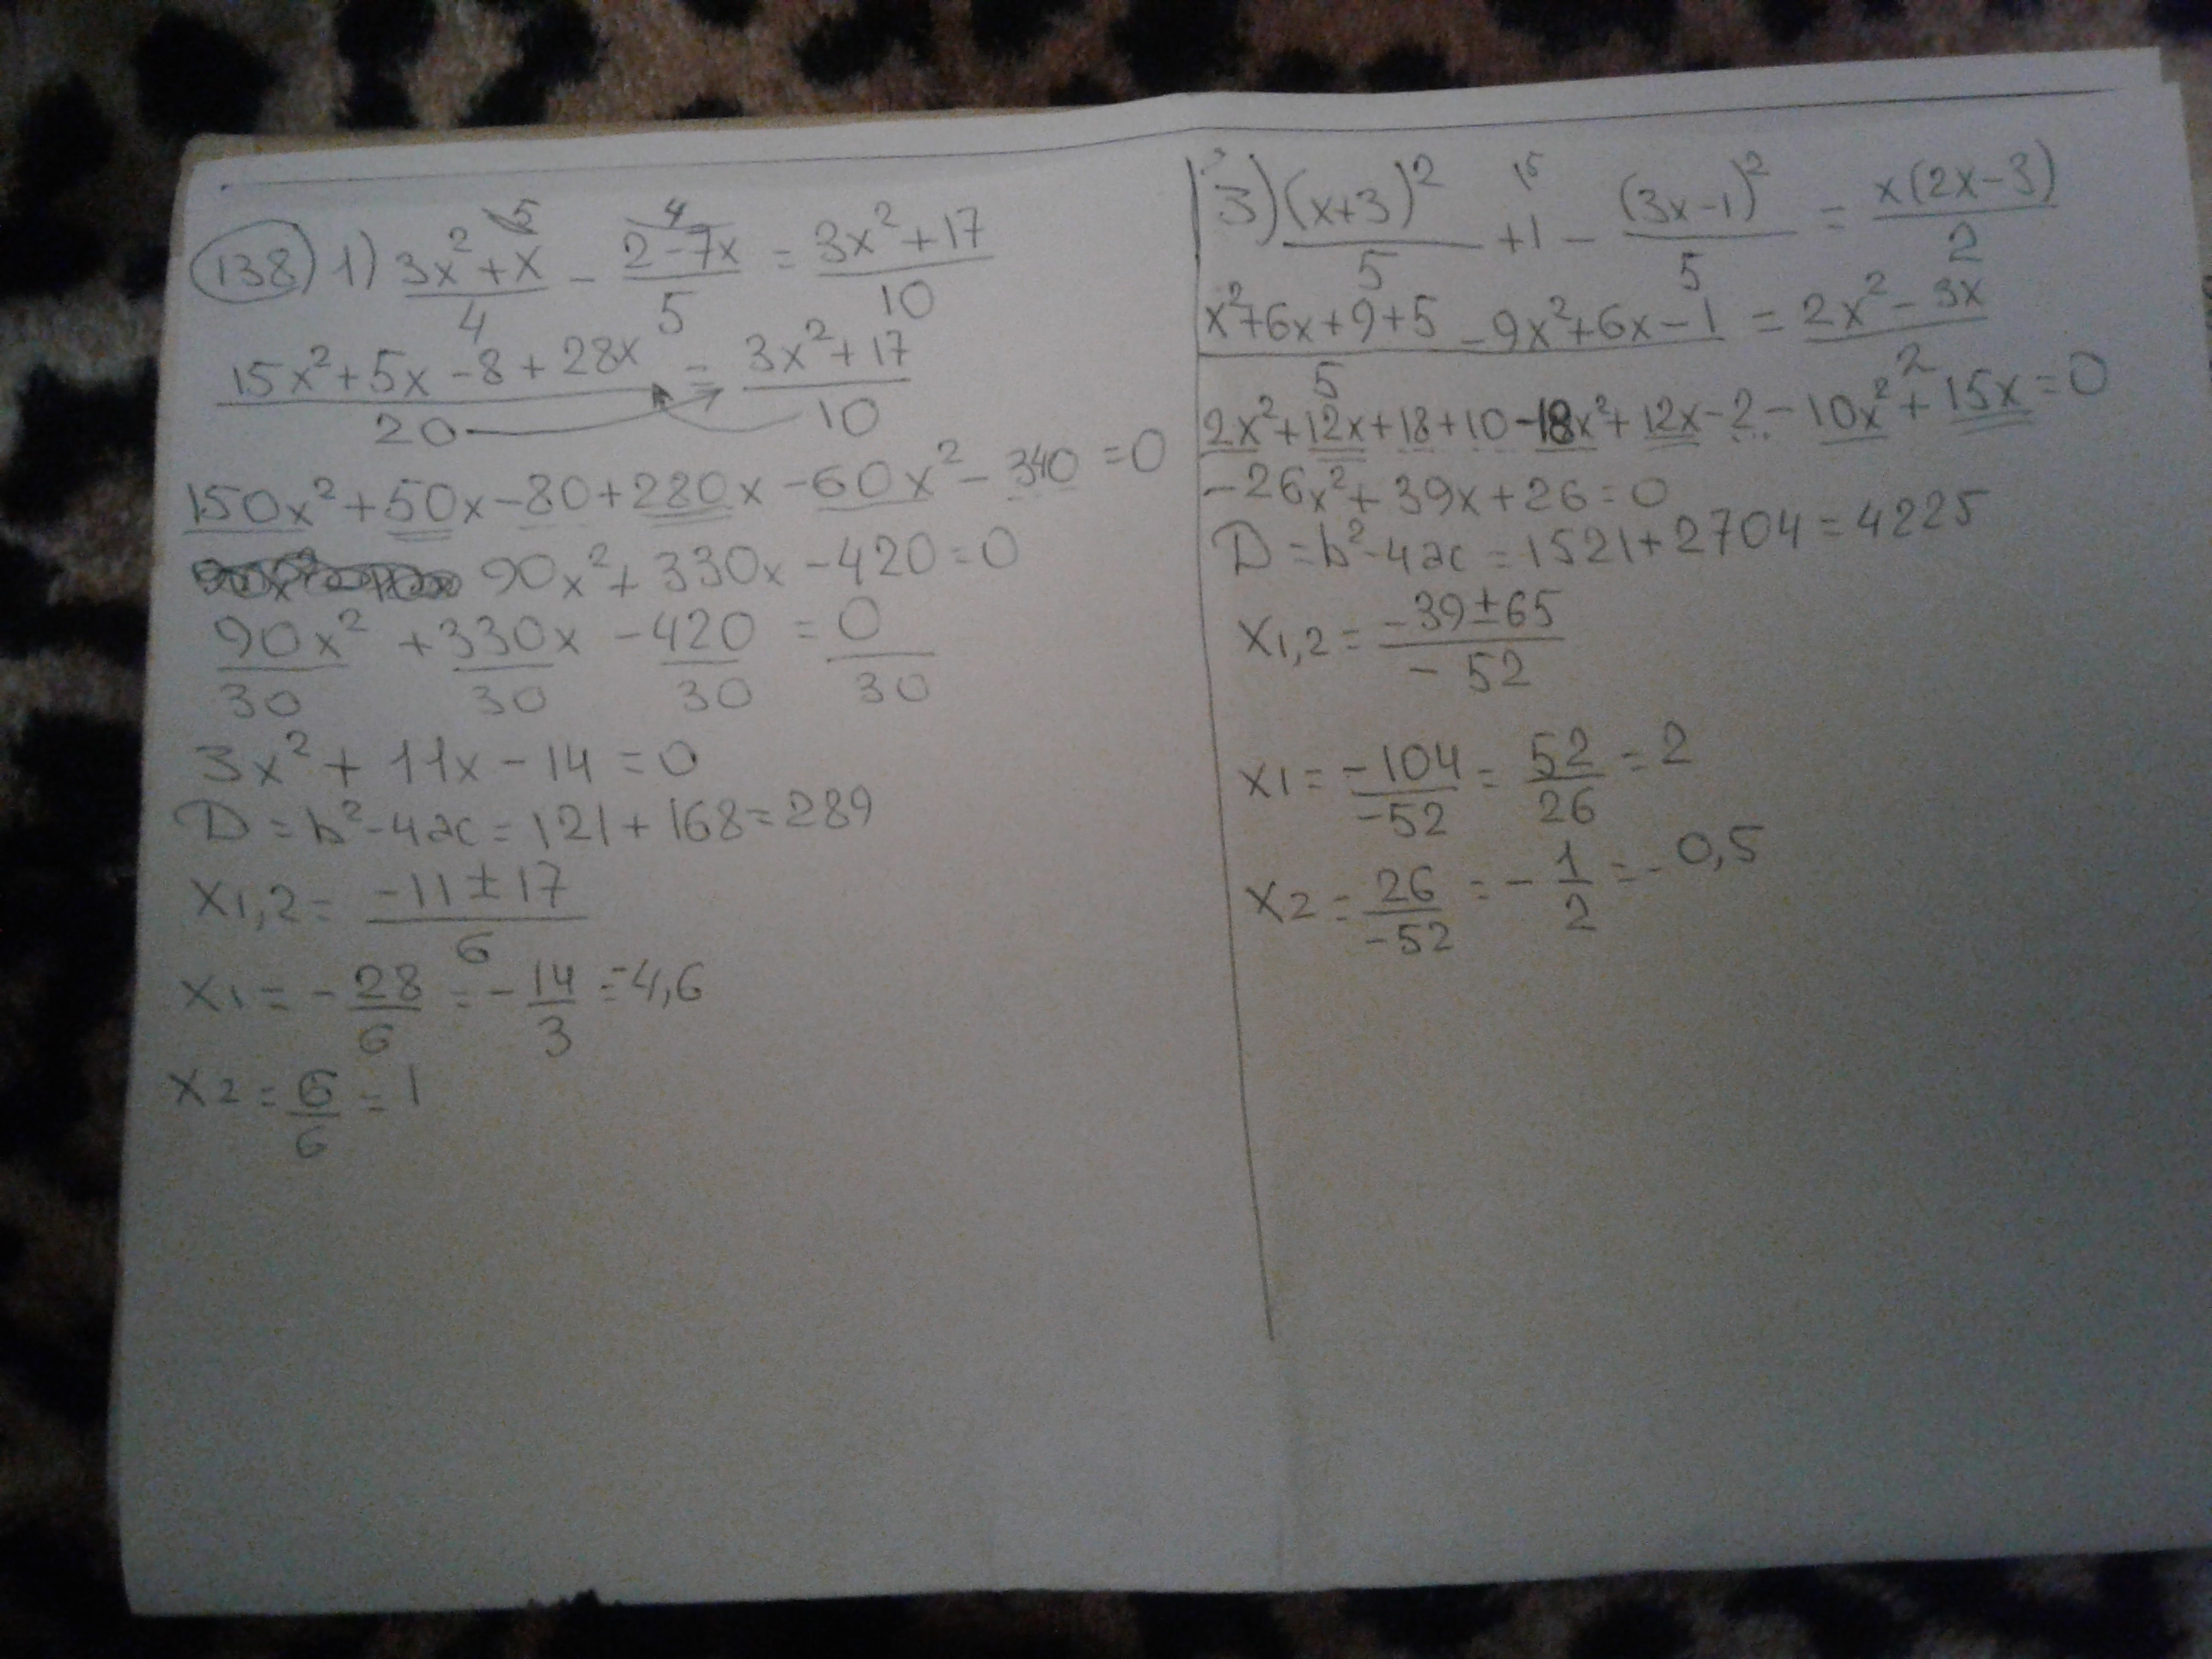 138) 1) (3x²+x)/4 - (2-7x)/5 = (3x²+17)/10
(15x²+5x-8+28x)/20 = (3x²+17)/10
150x²+50x-80+280x-60x²-340=0
90x²+330x-420=0
90x²/30 +330x/30 -420/30 = 0/30
3x²+11x-14=0
D=b²-4ac=121+168=289
x1,2= (-11±17)/6
x1=-28/6=-14/3=-4,6
x2=6/6=1
3) (x+3)²/5 +1- (3x-1)²/5 = x(2x-3)/2
(x²+6x+9+5-9x²+6x-1)/5 = (2x²-3x)/2
2x²+12x+18+10-18x²+12x-2-10x²+15x=0
-26x²+39x+26=0
D=b²-4ac=1521+2704=4225
x1,2= (-39±65)/-52
x1=-104/-52=52/26=2
x2=26/-52=-1/2=-0,5